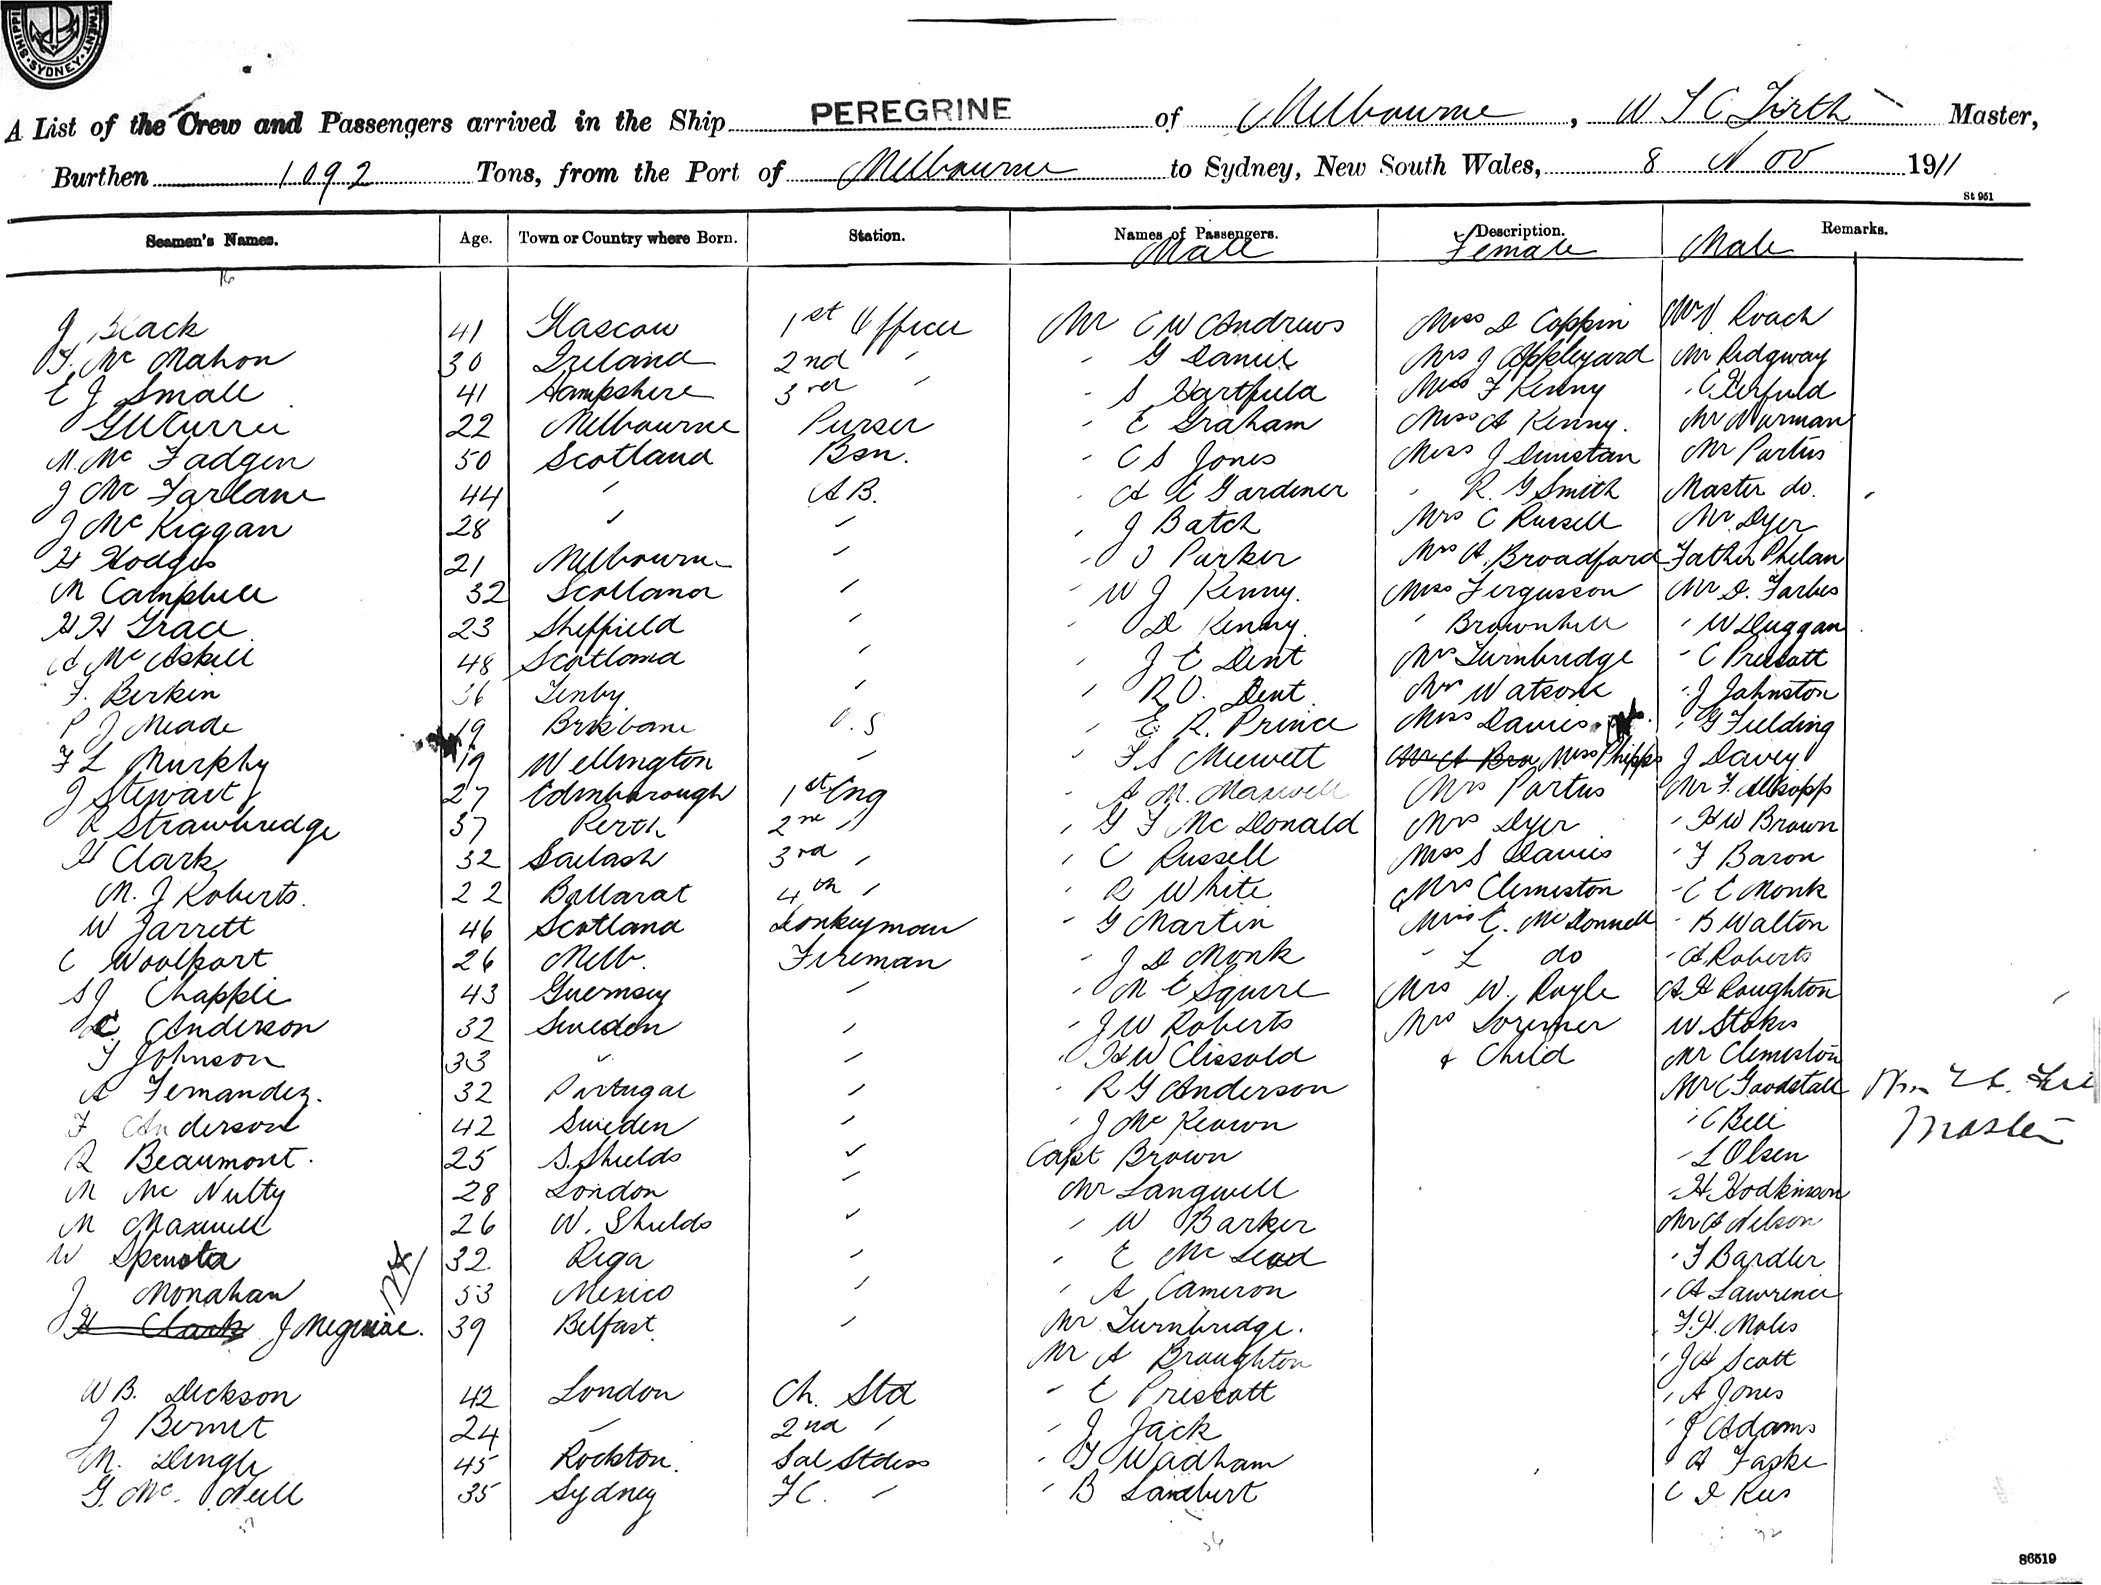 SHIPPI MENT. SYDNEY.
A List of the Crew and Passengers arrived in the Ship PEREGRINE of Melbourne, W T C Firth Master,
Burthen 1092 Tons, from the Port of Melbourne to Sydney, New South Wales, 8 Nov 1911
St 951
Seamen's Names. Age. Town or Country where Born. Station. Names of Passengers. Description. Remarks.
Male Female Male
J Black 41 Glascow 1st Officer Mr C W Andrews Miss D Coppin Roach
F. Mc Mahon 30 Ireland 2nd " " G Daniel Mrs J Appleyard Mr Ridgway
E J Small 41 Hampshire 3rd " " S Hartfield Miss F Kenny " C
G W Currie 22 Melbourne Purser " E Graham Miss A Kenny. Mr Norman
M. Mc Fadgen 50 Scotland Bsn. " C S Jones Miss J Dunstan Mr Portus
J Mc Farlane 44 " A B. " A E Gardiner " R. G Smith Master do.
J Mc Kiggan 28 " " " J Batch Mrs C Russell Mr Dyer
H Hodges 21 Melbourne " " J Parker Mrs A. Broadford Father Phelan
M Campbell 32 Scotland " " W J Kenny. Miss Fergusson Mr D. Forbes
H H Grace 23 Sheffield " " D Kenny " Brownhill " W Duggan
A Mc Askill 48 Scotland " " J E Dent Mrs Turnbridge " C Prescott
F. Berkin 36 Tenby " " R O. Dent Mrs Watson " J Johnston
P J Meade 19 Brisbane O. S " E. R. Prince Miss Davies " G Fielding
F L Murphy 19 Wellington " " F S Mewett Miss Phipps J Davey
J Stewart 27 Edinborough 1st Eng " A M. Maxwell Mrs Portus Mr F. Allsopp
R Strawbridge 37 Perth 2nd " " G F Mc Donald Mrs Dyer " H W Brown
H Clark 32 Saltash 3rd " " C Russell Miss S Davies " F Baron
M. J Roberts. 22 Ballarat 4th " " R White Mrs Clemeston " C E Monk
W Jarrett 46 Scotland Donkeyman " G Martin Miss E. McDonnell " B Walton
C Woolpart 26 Melb. Fireman " J D Monk " L do " A Roberts
S J Chapple 43 Guernsey " " M E Squire Mrs W. Royle A H Roughton
C Anderson 32 Sweden " " J W Roberts Mrs Lorimer W Stokes
T Johnson 33 " " " H W Clissold & Child Mr Clemeston
A Fernandez. 32 Portugal " " R G Anderson Mr C Goodstall Wm T C
F Anderson 42 Sweden " " J Mc Keown " C Bell Master
R Beaumont. 25 S. Shields " Capt Brown " L Olsen
M Mc Nulty 28 London " Mr Langwell " H Hodkinson
M Maxwell 26 W. Shields " " W Barker Mr A Nelson
W 32 Riga " " E Mc Leod " F Bardler
J Monahan 53 Mexico " " A Cameron " A Lawrence
H Clark J Meguire. 39 Belfast " Mr Turnbridge. F. H. Moles
Mr A Broughton " J H Scott
W B. Dickson 42 London Ch. Std " E Prescott " A Jones
J Bernet 24 " 2nd " " J Jack " J Adams
M. Dingle 45 Rockton. Sal Stdess " T Wadham " A Faske
G. Mc. Neill 35 Sydney F C. " " B Lambert C D Rees
86519